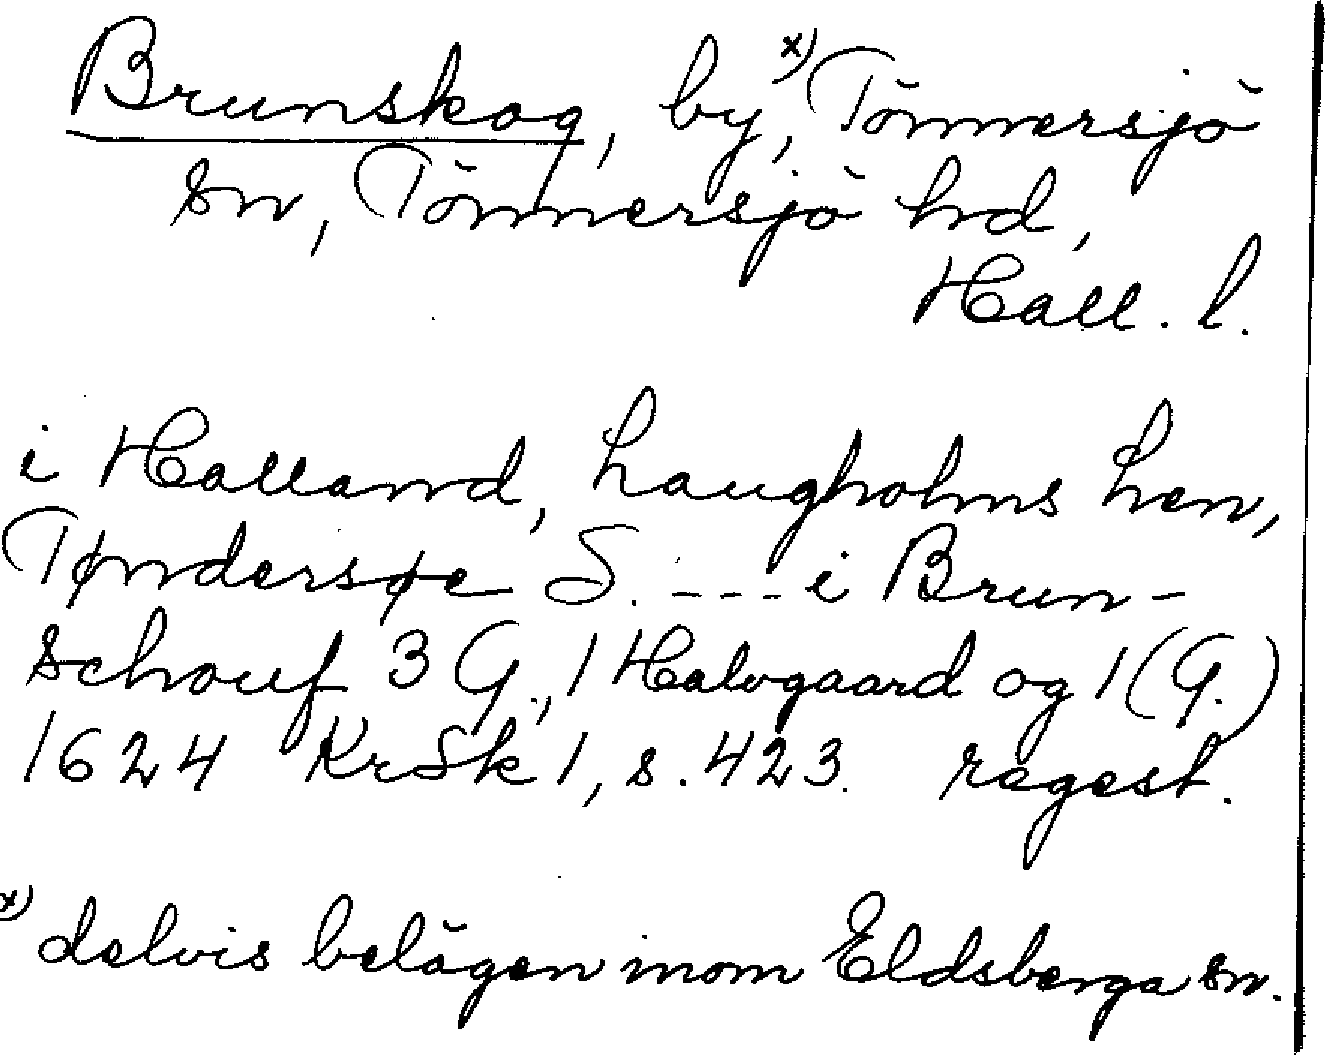 Brunskog, by,x) Tönnersjö
sn, Tönnersjö hd,
Hall. l.
i Halland, Laugholms Len,
Tøndersøe S. --- i Brun-
schouf 3 G., 1 Halvgaard og 1 (G.)
1624 KrSk 1, s. 423. regest.
x) delvis belägen inom Eldsberga sn.